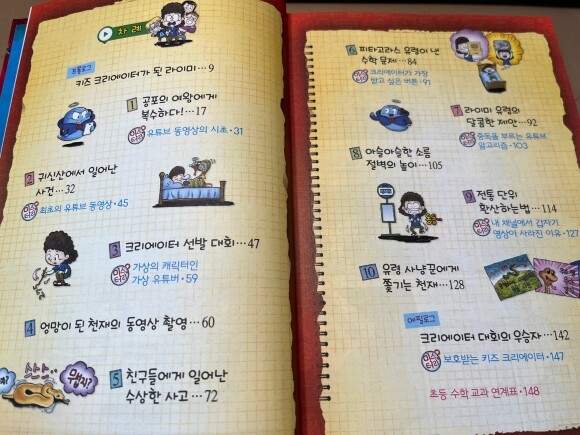 차례
프롤로그
키즈 크리에이터가 된 라이미…9
1 공포의 여왕에게
복수하다!…17
미스터리 유튜브 동영상의 시초·31
2 귀신산에서 일어난
사건…32
미스터리 최초의 유튜브 동영상·45
3 크리에이터 선발 대회…47
미스터리 가상의 캐릭터인
가상 유튜버·59
4 엉망이 된 천재의 동영상 촬영…60
스스스
무섭지?
5 친구들에게 일어난
수상한 사고…72
6 피타고라스 유령이 낸
수학 문제…84
미스터리 크리에이터가 가장
받고 싶은 버튼·91
7 라이미 유령의
달콤한 제안…92
미스터리 중독을 부르는 유튜브
알고리즘·103
8 아슬아슬한 소름
절벽의 놀이…105
9 전통 단위
환산하는법…114
미스터리 내 채널에서 갑자기
영상이 사라진 이유·127
10 유령 사냥꾼에게
쫓기는 천재…128
에필로그
크리에이터 대회의 우승자…142
미스터리 보호받는 키즈 크리에이터·147
초등 수학 교과 연계표·148